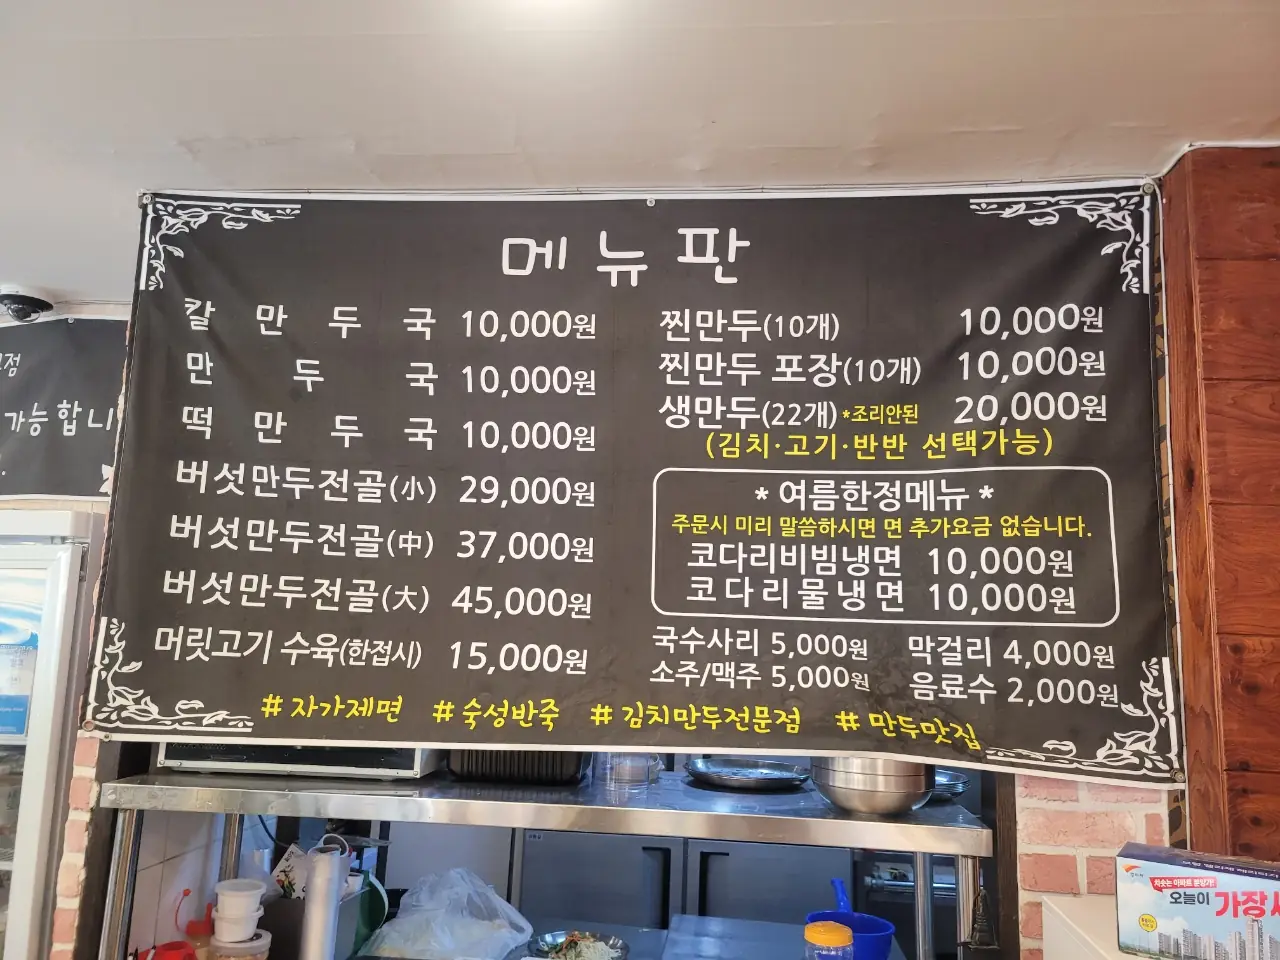 메뉴판
칼만두국 10,000원
만두국 10,000원
떡만두국 10,000원
버섯만두전골(小) 29,000원
버섯만두전골(中) 37,000원
버섯만두전골(大) 45,000원
머릿고기 수육(한접시) 15,000원
찐만두(10개) 10,000원
찐만두 포장(10개) 10,000원
생만두(22개) *조리안된 20,000원
(김치·고기·반반 선택가능)
* 여름한정메뉴 *
주문시 미리 말씀하시면 면 추가요금 없습니다.
코다리비빔냉면 10,000원
코다리물냉면 10,000원
국수사리 5,000원 막걸리 4,000원
소주/맥주 5,000원 음료수 2,000원
# 자가제면 # 숙성반죽 # 김치만두전문점 # 만두맛집
점
가능합니
치솟는 아파트 분양가!
오늘이 가장